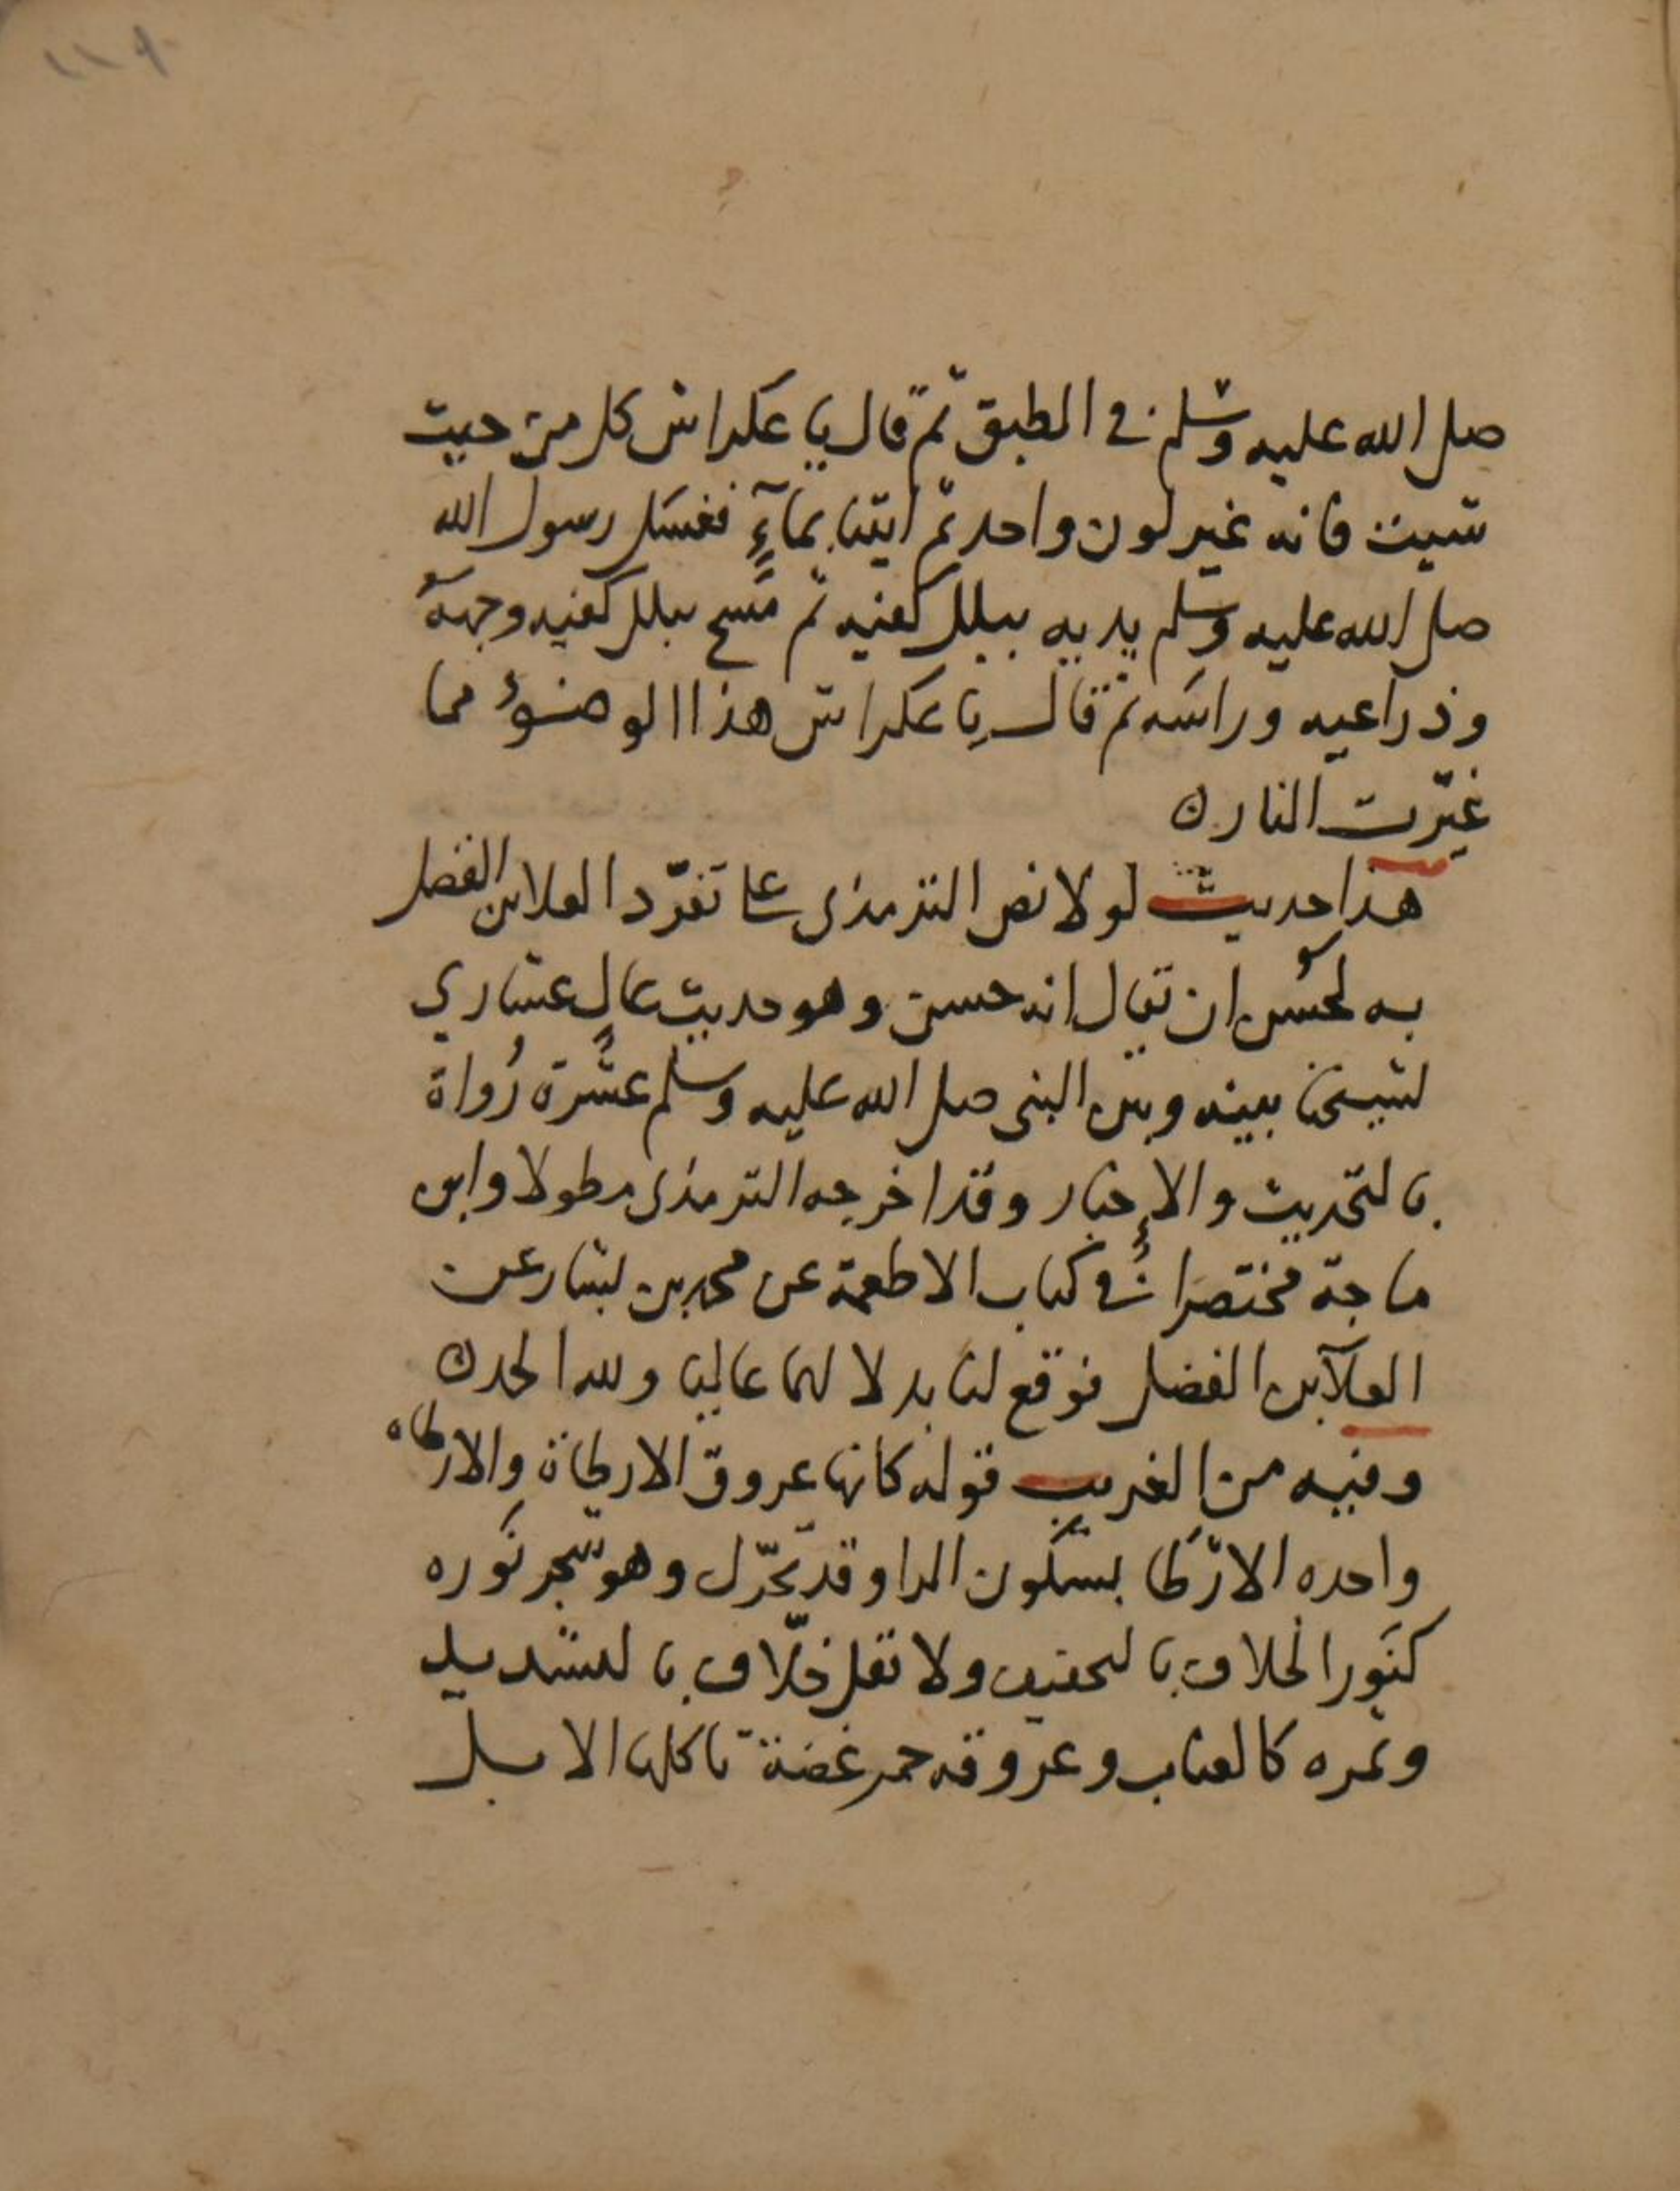 ١١٩
صلى الله عليه وسلم في الطبق ثم قال يا عكراش كل من حيث
شيت فانه غير لون واحد ثم اتينا بمآءٍ فغسل رسول الله
صلى الله عليه وسلم يديه ببلل كفيه ثم مَسح ببلل كفيه وجهه
وذراعيه وراسه ثم قال يا عكراش هذا الوضوء مما
غيّرت النار ن
هذا حديث لولا نص الترمذي على تفرّد العلا بن الفضل
به لحسُن ان يقال انه حسن وهو حديث عالٍ عشاري
لشيخنا بينه وبين النبي صلى الله عليه وسلم عشَرة رُواة
بالتحديث والإخبار وقد اخرجه الترمذي مطولا وابن
ماجة مختصرا في كتاب الاطعمة عن محمد بن بشار عن
العلآ بن الفضل فوقع لنا بدلا لهما عاليا ولله الحمد ن
وفيه من الغريب قوله كانها عروق الارطاة والارطاه
واحده الارْطَا بسكون الرا وقد تحرّك وهو شجر نَوره
كنَور الخلاف بالتخفيف ولا تقل خلّاف بالتشديد
وثمره كالعناب وعروقه حمر غضة تاكلها الابل